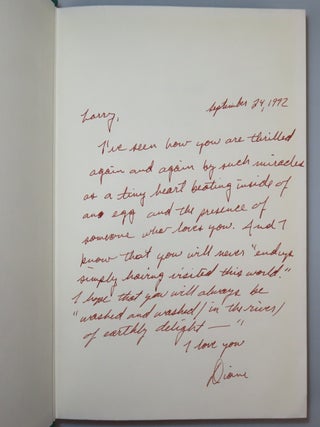 September 24, 1992
Larry,
I've seen how you are thrilled
again and again by such miracles
as a tiny heart beating inside of
an egg and the presence of
someone who loves you. And I
know that you will never "end up
simply having visited this world."
I hope that you will always be
"washed and washed / in the river /
of earthly delight — "
I love you
Diane